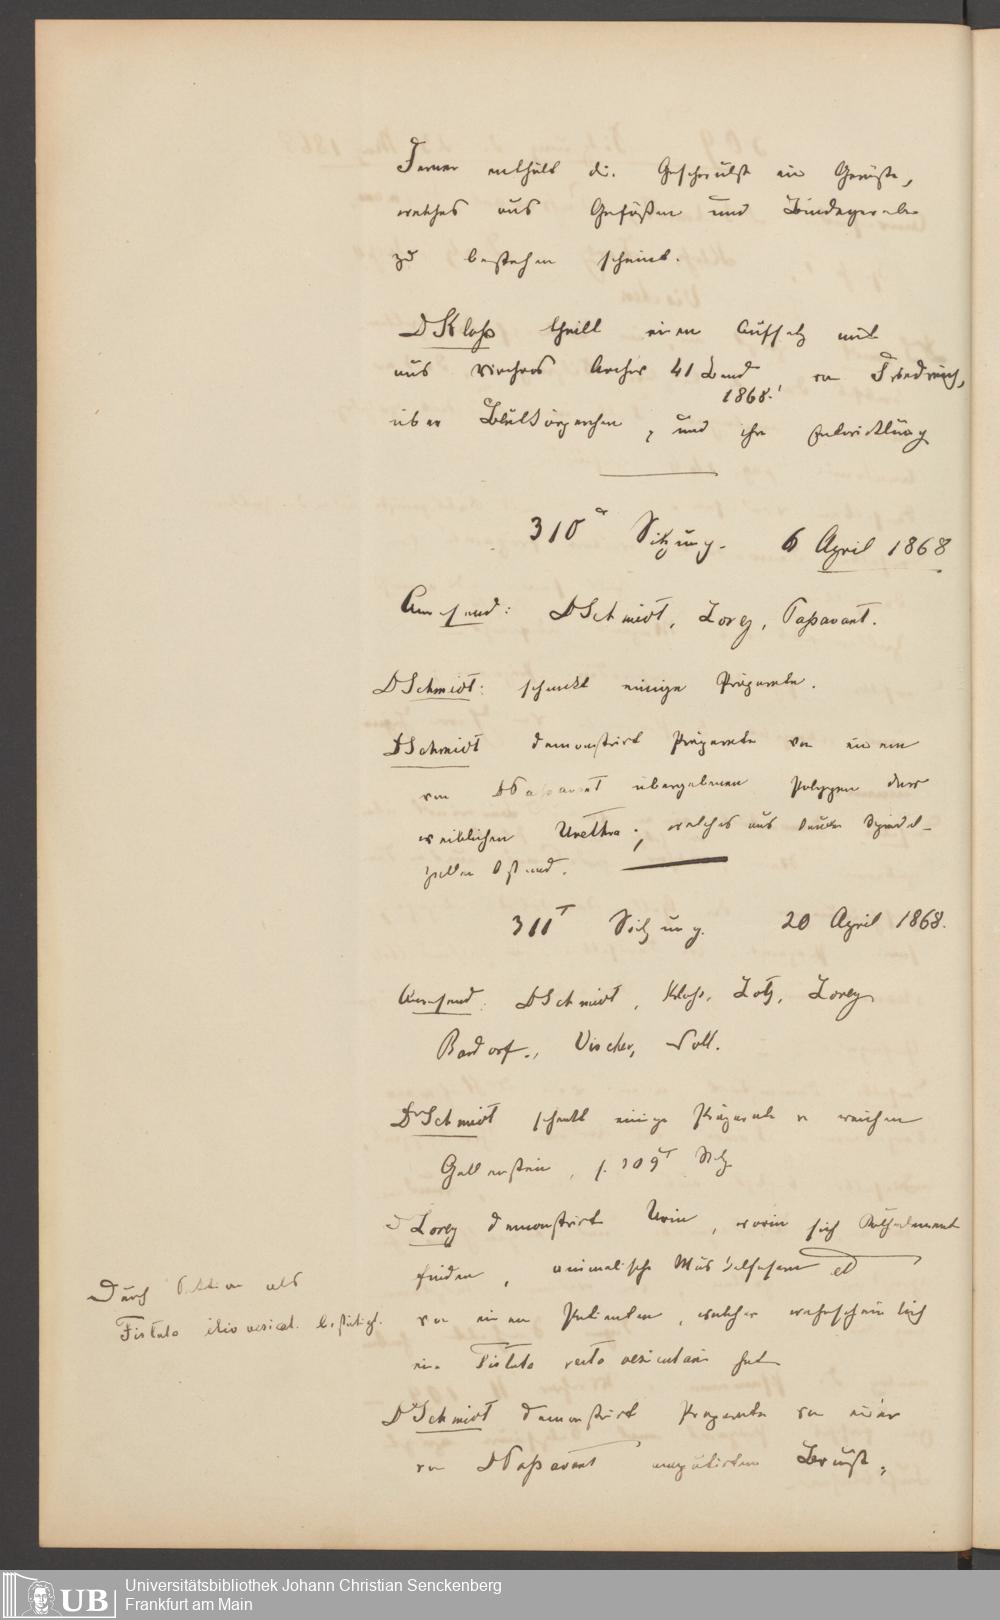 Ferner enthält die Geschwulst ein Gerüste,
welches aus Gefäßen und Bindegewebe
zu bestehen scheint.
D Kloß theilt einen Aufsatz mit
aus Virchows Archiv 41 Band von Friedreich,
1868.
über Blutkörperchen, und ihre Entwicklung
310 Sitzung. 6 April 1868
Anwesend: D Schmidt, Lorey, Paßavant.
D Schmidt: schenkt einige Präparate.
D Schmidt demonstrirt Präparate von einem
von D Passavant übergebenen Polypen der
weiblichen Urethra; welches aus Spindel-
zellen bestand.
311 T Sitzung. 20 April 1868.
Anwesend: D Schmidt, Kloß, Lotz, Lorey
Bardorf., Vischer, Noll.
Dr Schmidt schenkt einige Präparate v weichen
Gallenstein, s. 309 T Sitz
D Lorey demonstrirt Urin, worin sich Kothelemente
finden, animalische Muskelfasern et
von einem Patienten, welcher wahrscheinlich
eine Fistula recto vesicularis hat
Durch Sektion als
Fistula ilio vesical. bestätigt.
Dr Schmidt demonstrirt Präparate von einer
von D Paßavant amputirten Brust,
Universitätsbibliothek Johann Christian Senckenberg
UB Frankfurt am Main